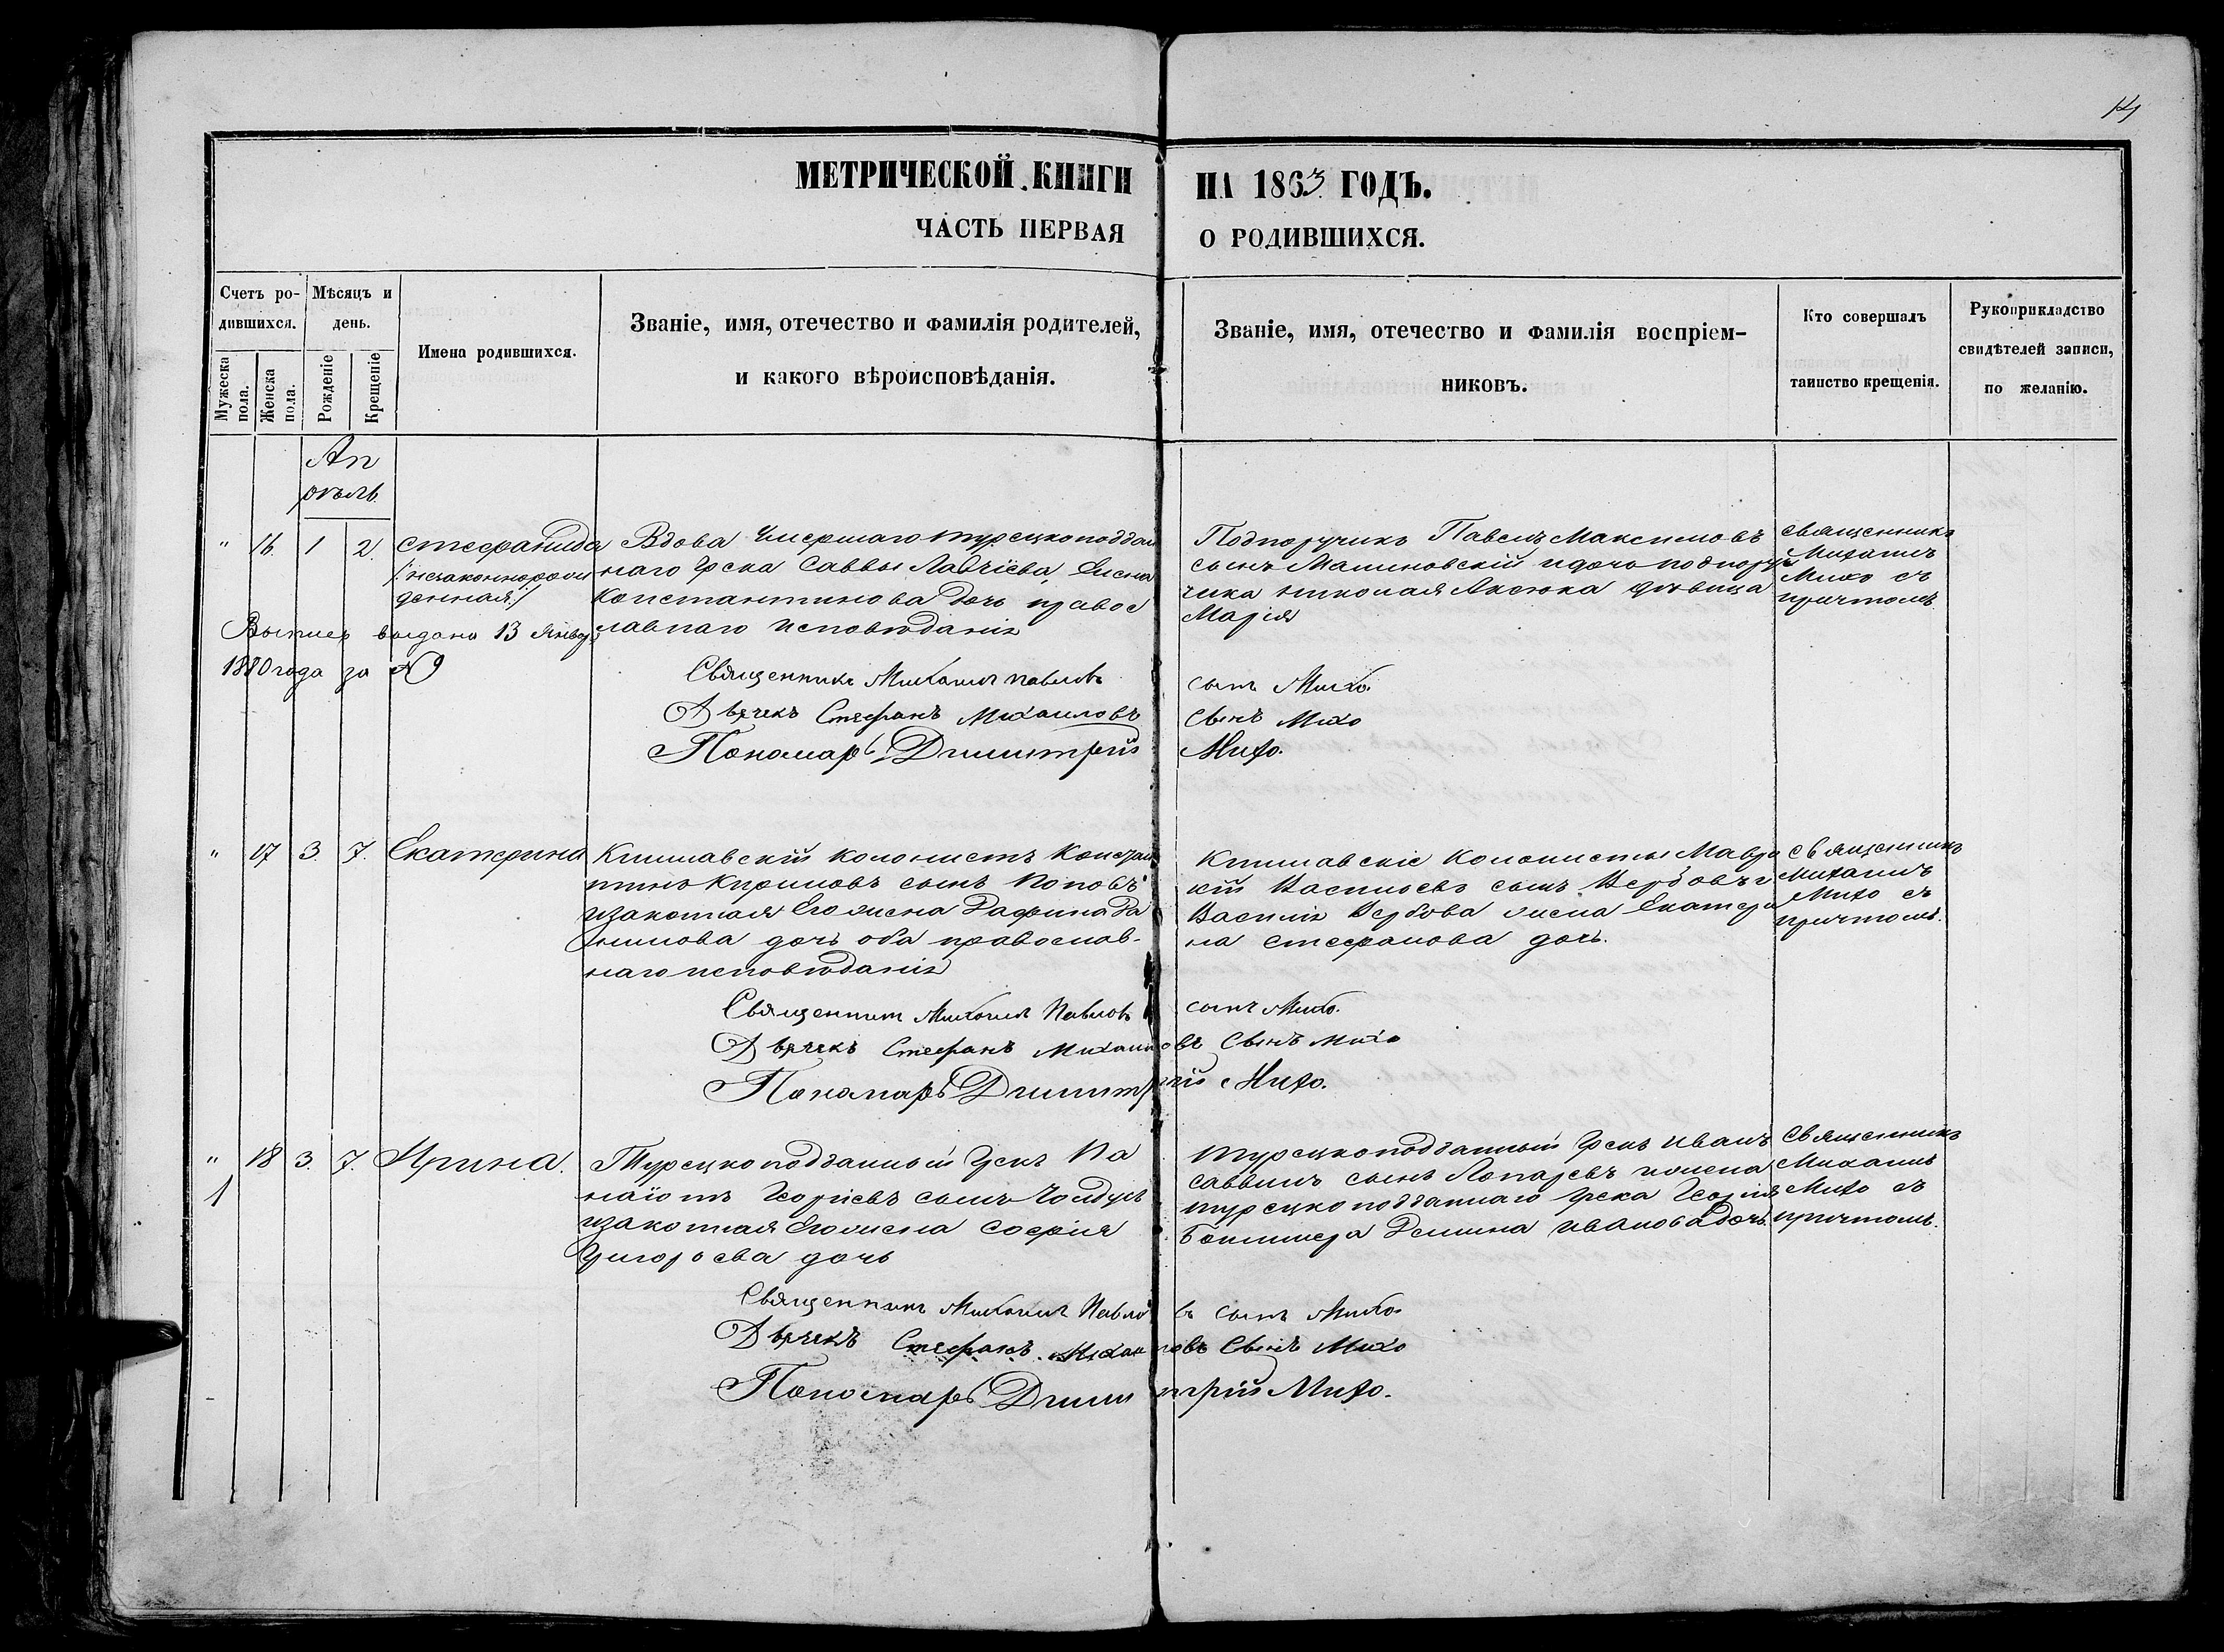 14
МЕТРИЧЕСКОЙ КНИГИ НА 1863 ГОДЪ.
ЧАСТЬ ПЕРВАЯ О РОДИВШИХСЯ.
Счетъ ро-
дившихся.
Мужеска
пола.
Женска
пола.
Мѣсяцъ и
день.
Рожденіе
Крещеніе
Имена родившихся.
Званіе, имя, отечество и фамилія родителей,
и какого вѣроисповѣданія.
Званіе, имя, отечество и фамилія воспріем-
никовъ.
Кто совершалъ
таинство крещенія.
Рукоприкладство
свидѣтелей записи,
по желанію.
Ап
рѣль.
" 16. 1 2. Стефанида
/:незаконнорож
денная:/
Вдова умершаго турецкоподдан
наго Грека Саввы Елена
Константинова дочь правос
лавнаго исповѣданія
Подпоручикъ Павелъ Максимовъ
сынъ Малиновскій и дочь подпору
чика Николая Аксюка дѣвица
Марія
Священникъ
Михаилъ
Михо съ
причтомъ.
Выпись выдана 13 Январ
1880 года за № 9
Священникъ Михаилъ Павловъ сынъ Михо.
Дьячекъ Стефанъ Михаиловъ Сынъ Михо
Пономарь Димитрій Михо.
" 17 3. 7. Екатерина
Килиавскій колонистъ Констан
тинъ Кириловъ сынъ Поповъ
и законная его жена Дафина Да
нилова дочь оба православ-
наго исповѣданія
Килиавскіе колонисты Мавр
кій Васильевъ сынъ Вербовъ и
Василія Вербова жена Екатери
на Стефанова дочь.
Священникъ
Михаилъ
Михо съ
причтомъ.
Священникъ Михаилъ Павловъ сынъ Михо.
Дьячекъ Стефанъ Михаиловъ Сынъ Михо
Пономарь Димитрій Михо.
" 18 3. 7. Ирина.
1
Турецкоподданный Грекъ Па
наіотъ Георгіевъ сынъ
и законная его жена Софія
Григорьева дочь
Турецкоподданный Грекъ Иванъ
Саввинъ сынъ и жена
турецкоподданнаго Грека Георгія
Ивановa дочь.
Священникъ
Михаилъ
Михо съ
причтомъ.
Священникъ Михаилъ Павловъ сынъ Михо
Дьячекъ Стефанъ Михаиловъ Сынъ Михо
Пономарь Димитрій Михо.